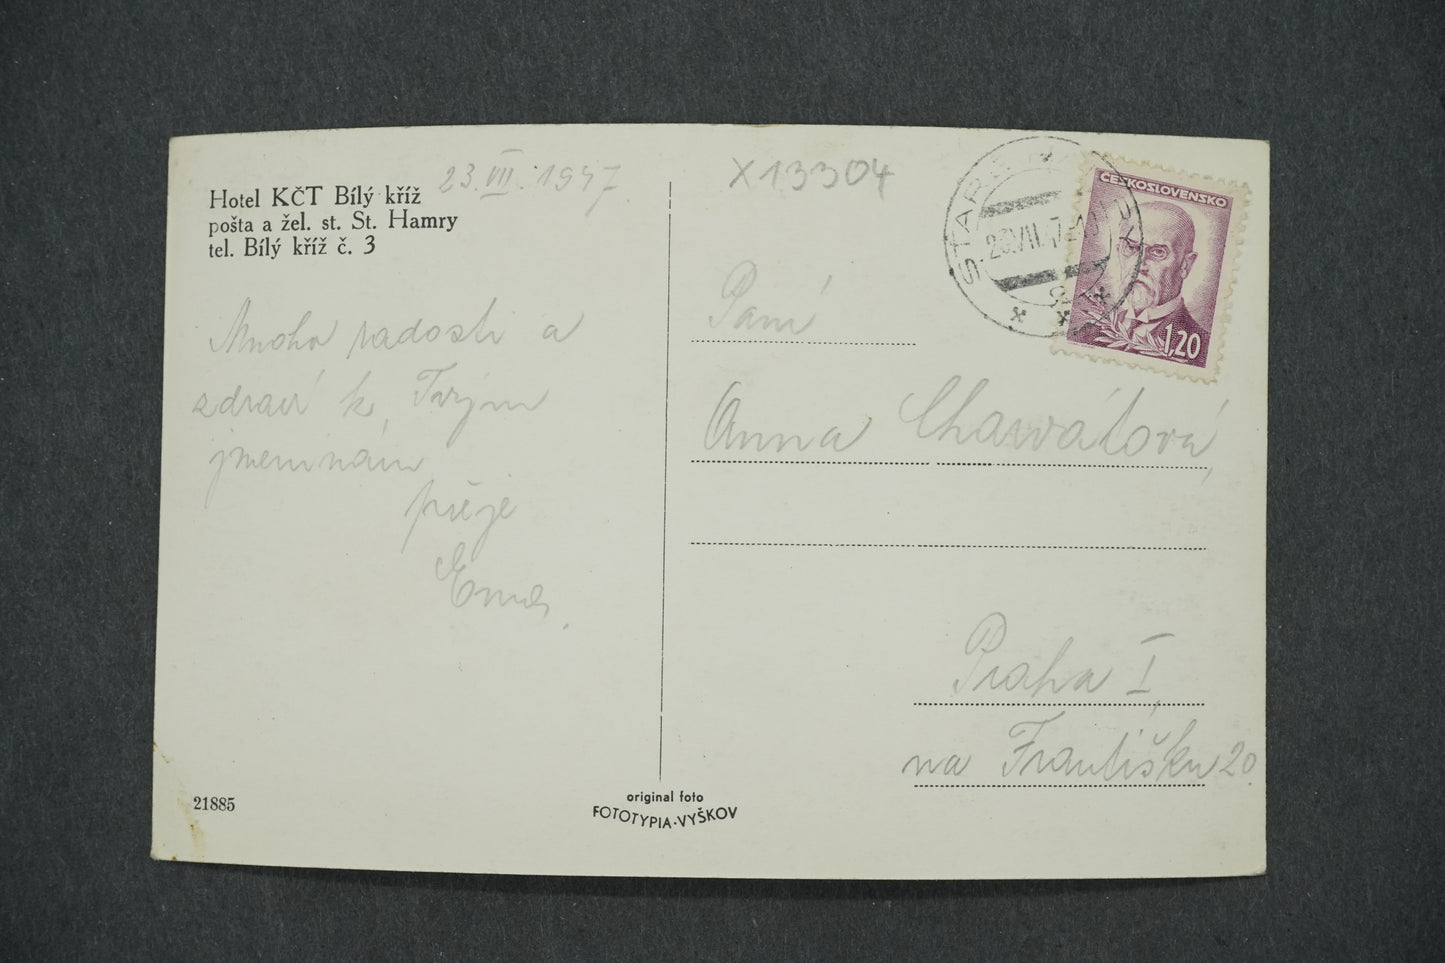 Hotel KČT Bílý kříž
pošta a žel. st. St. Hamry
tel. Bílý kříž č. 3
23.VII.1947
Mnoho radosti a
zdraví k Tvým
jmeninám
přeje
Ema.
21885
original foto
FOTOTYPIA-VYŠKOV
X13304
STARÉ
ČESKOSLOVENSKO
1,20
Paní
Anna Charvátová,
Praha I,
na Františku 20